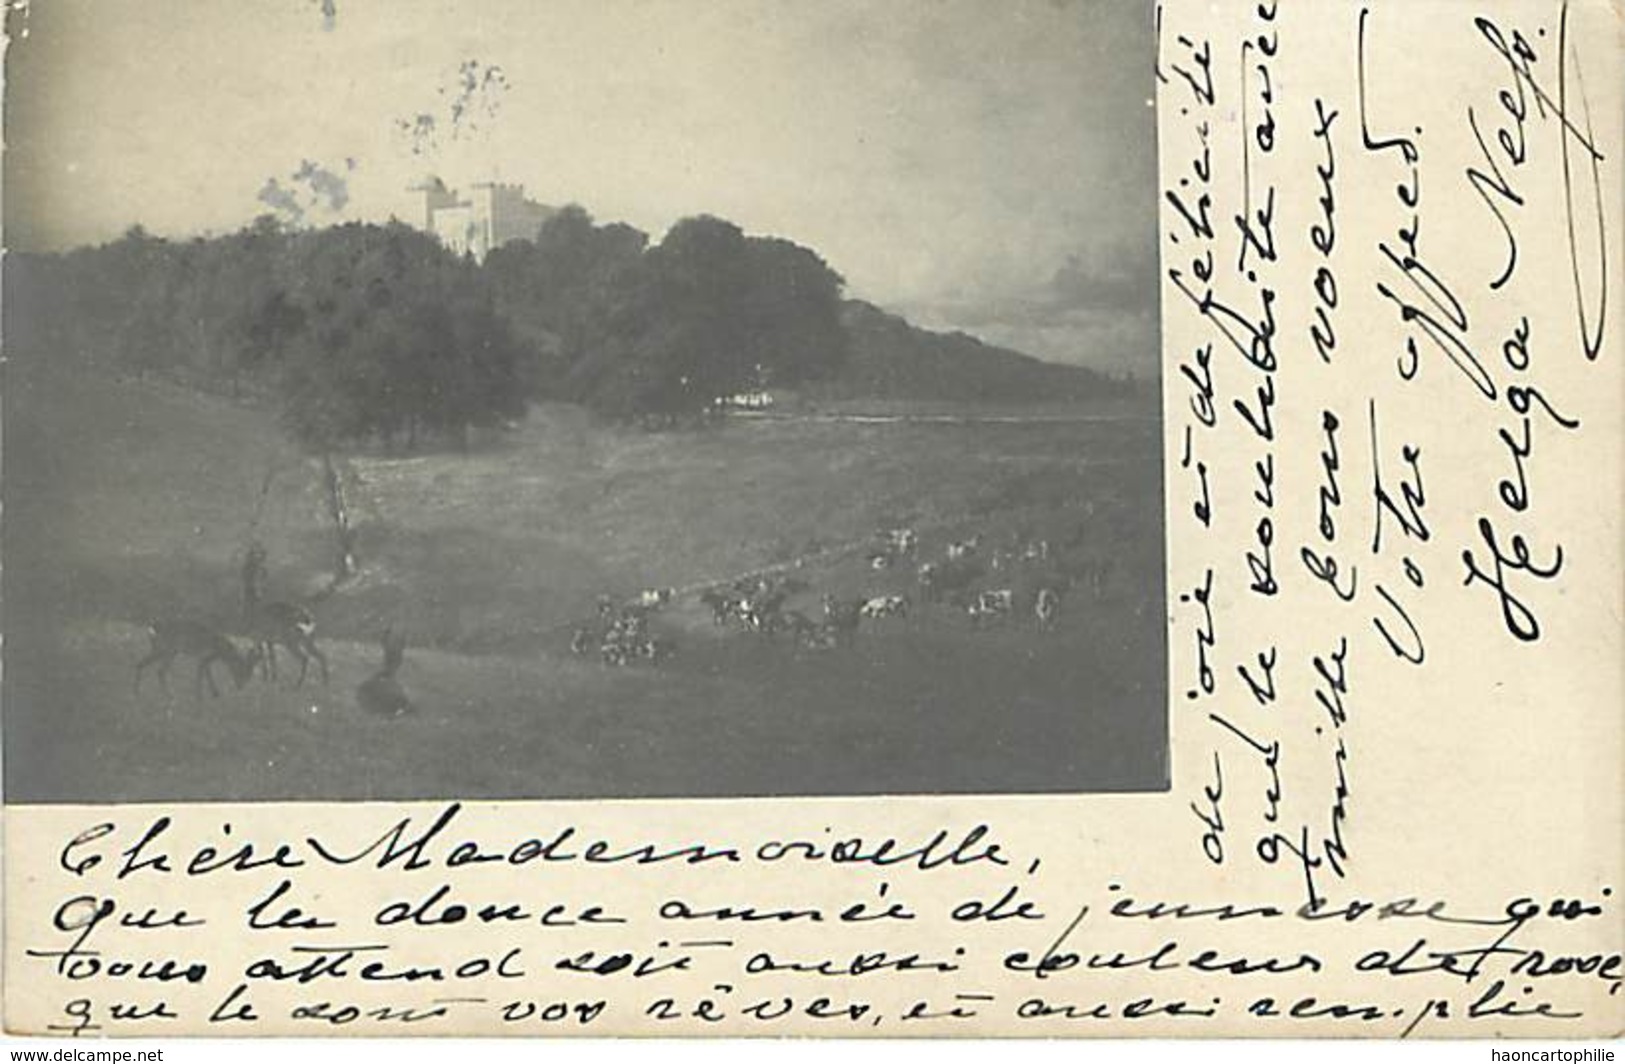 Chère Mademoiselle,
que la douce année de jeunesse qui
vous attend soit aussi couleur de rose,
que le sont vos rêves, et aussi remplie
de joie et de félicité
que le souhaite avec
mille bons voeux
Votre affec.
Helga
www.delcampe.net
haoncartophilie